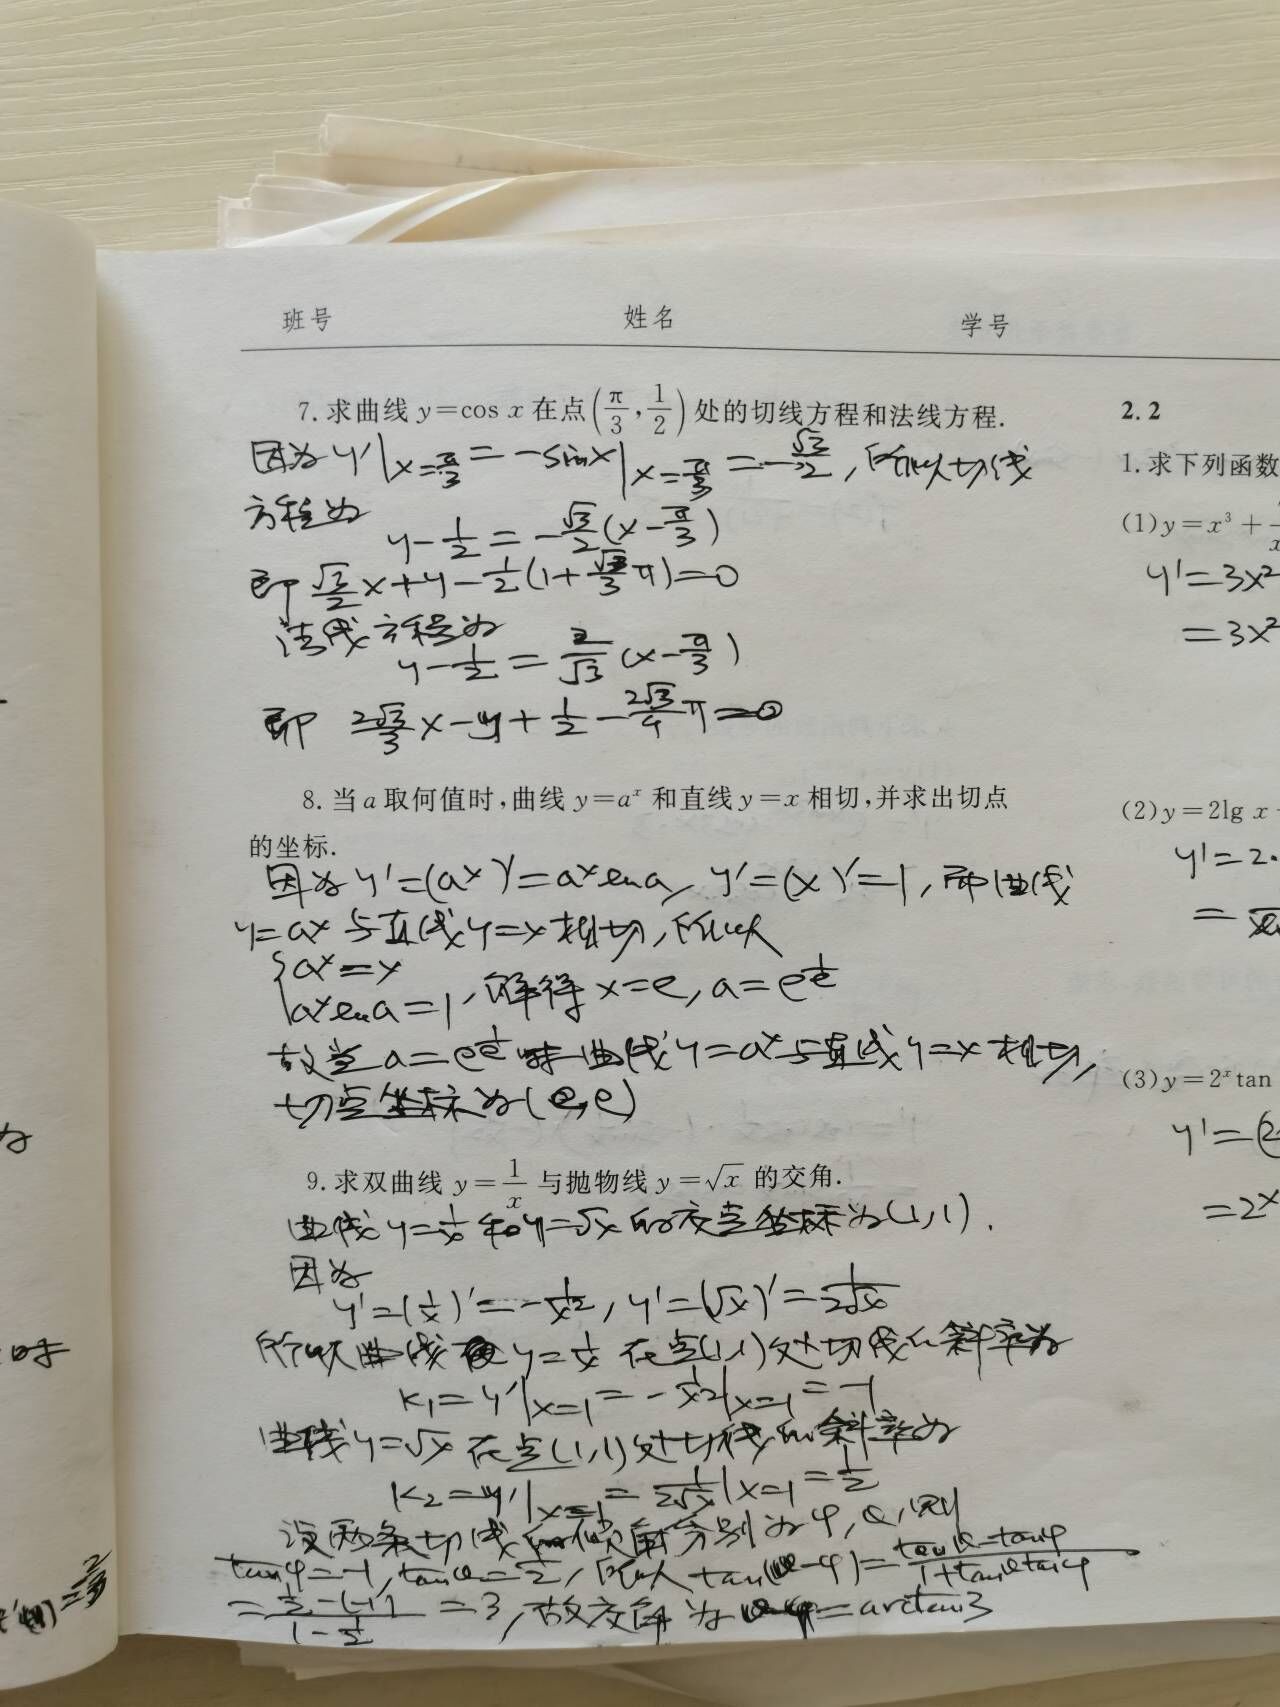 班号 姓名 学号
7.求曲线 y=cos x 在点(π/3, 1/2)处的切线方程和法线方程.
因为 y'|x=π/3 = -sinx|x=π/3 = -√3/2, 所以切线
方程为
y-1/2=-√3/2(x-π/3)
即 √3/2x+y-1/2(1+√3/3π)=0
法线方程为
y-1/2=2/√3(x-π/3)
即 2√3/3x-y+1/2-2√3/4π=0
8.当 a 取何值时,曲线 y=aˣ 和直线 y=x 相切,并求出切点
的坐标.
因为 y'=(aˣ)'=aˣlna, y'=(x)'=1, 而曲线
y=aˣ与直线y=x相切, 所以
{aˣ=x
aˣlna=1, 解得 x=e, a=e^(1/e)
故当 a=e^(1/e) 时曲线y=aˣ与直线y=x相切,
切点坐标为(e,e)
9.求双曲线 y=1/x 与抛物线 y=√x 的交角.
曲线y=1/x和y=√x的交点坐标为(1,1).
因为
y'=(1/x)'=-1/x², y'=(√x)'=1/2√x
所以曲线 y=1/x 在点(1,1)处切线的斜率为
k₁=y'|x=1=-1/x²|x=1=-1
曲线y=√x在点(1,1)处切线的斜率为
k₂=y'|x=1=1/2√x|x=1=1/2
设两条切线的倾角分别为φ,θ,则
tanφ=-1, tanθ=1/2, 所以 tan(θ-φ)=(tanθ-tanφ)/(1+tanθtanφ)
=(1/2-(-1))/(1-1/2)=3, 故交角为θ-φ=arctan3
2.2
1.求下列函数
(1)y=x³+
y'=3x²
=3x²
(2)y=2lg x
y'=2·
=
(3)y=2ˣtan
y'=(2
=2ˣ
为
时